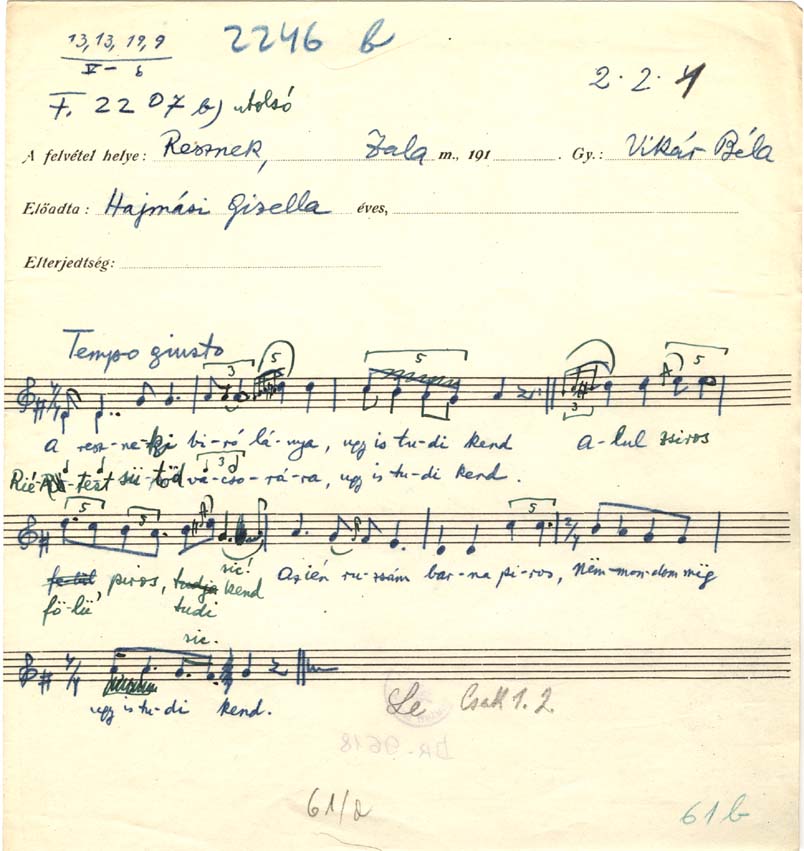 13, 13, 19, 9
2246 b
V – 6
2. 2. 4
F. 2207 b) utolsó
A felvétel helye: Resznek, Zala m., 191 . Gy.: Vikár Béla
Előadta: Hajmási Gizella éves,
Elterjedtség:
Tempo giusto
3 5 5 5
3
A resz-ne-ki bi-ró lá-nya, ugy is tu-di kend a-lul zsiros
sü-töd va-cso-rá-ra, ugy is tu-di kend.
3
5 5 5
2/4
sic!
piros, tudja kend Azién ru-zsám bar-na pi-ros, Nëm mon-dom mig
fö-lü' tudi
sic.
4/4
ugy is tu-di kend.
Le Csak 1. 2.
DR-9618
61/a
61 b